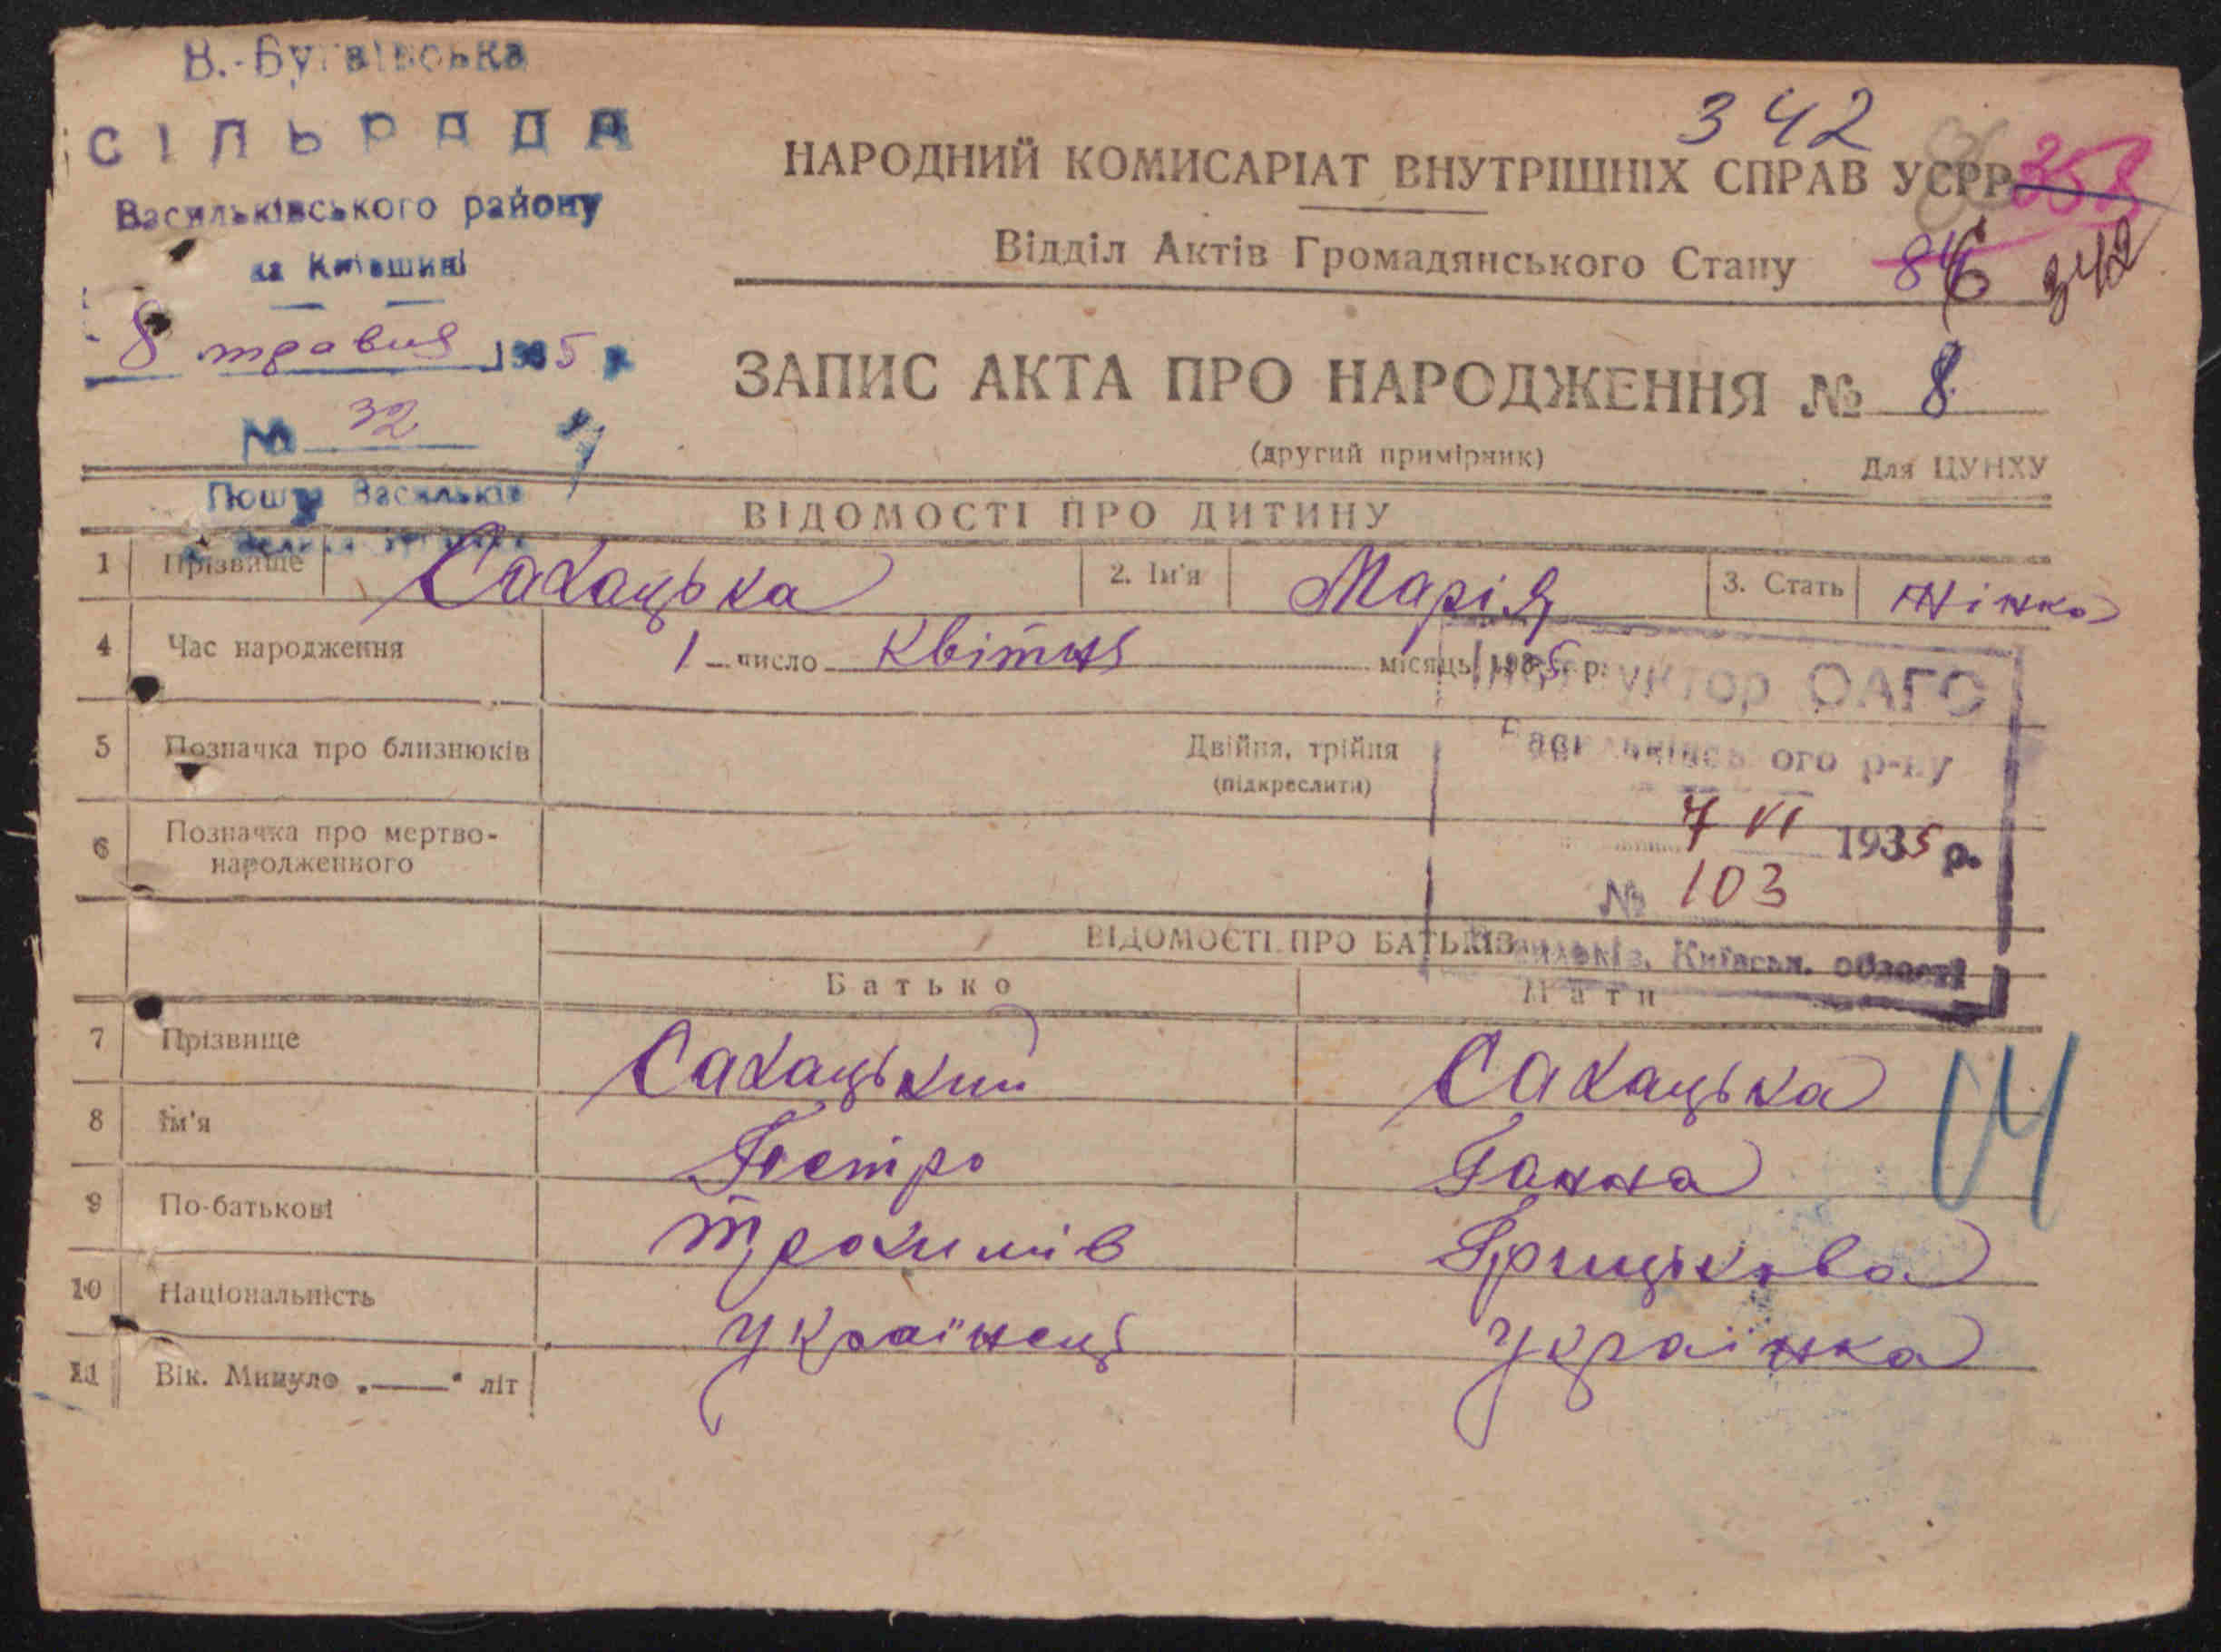 В.-Бугаївська
СІЛЬРАДА
Васильківського району
на Київщині
8 травня 1935 р.
№ 32
Пошта Васильків
342
НАРОДНИЙ КОМИСАРІАТ ВНУТРІШНІХ СПРАВ УСРР
Відділ Актів Громадянського Стану
342
ЗАПИС АКТА ПРО НАРОДЖЕННЯ № 8
(другий примірник)
Для ЦУНХУ
ВІДОМОСТІ ПРО ДИТИНУ
1 Прізвище Сахацька 2. Ім'я Марія 3. Стать жінка
4 Час народження 1 число Квітня місяць 1935 р.
Інструктор ОАГС
5 Позначка про близнюків Двійня, трійня
(підкреслити)
Васильківського р-ну
6 Позначка про мертво-
народженного
7 VI 1935 р.
№ 103
Васильків, Київськ. області
ВІДОМОСТІ ПРО БАТЬКІВ
Батько Мати
7 Прізвище Сахацький Сахацька
8 Ім'я Петро Ганна
9 По-батькові Трохимів Грицькова
10 Національність Українець Українка
11 Вік. Минуло „—" літ